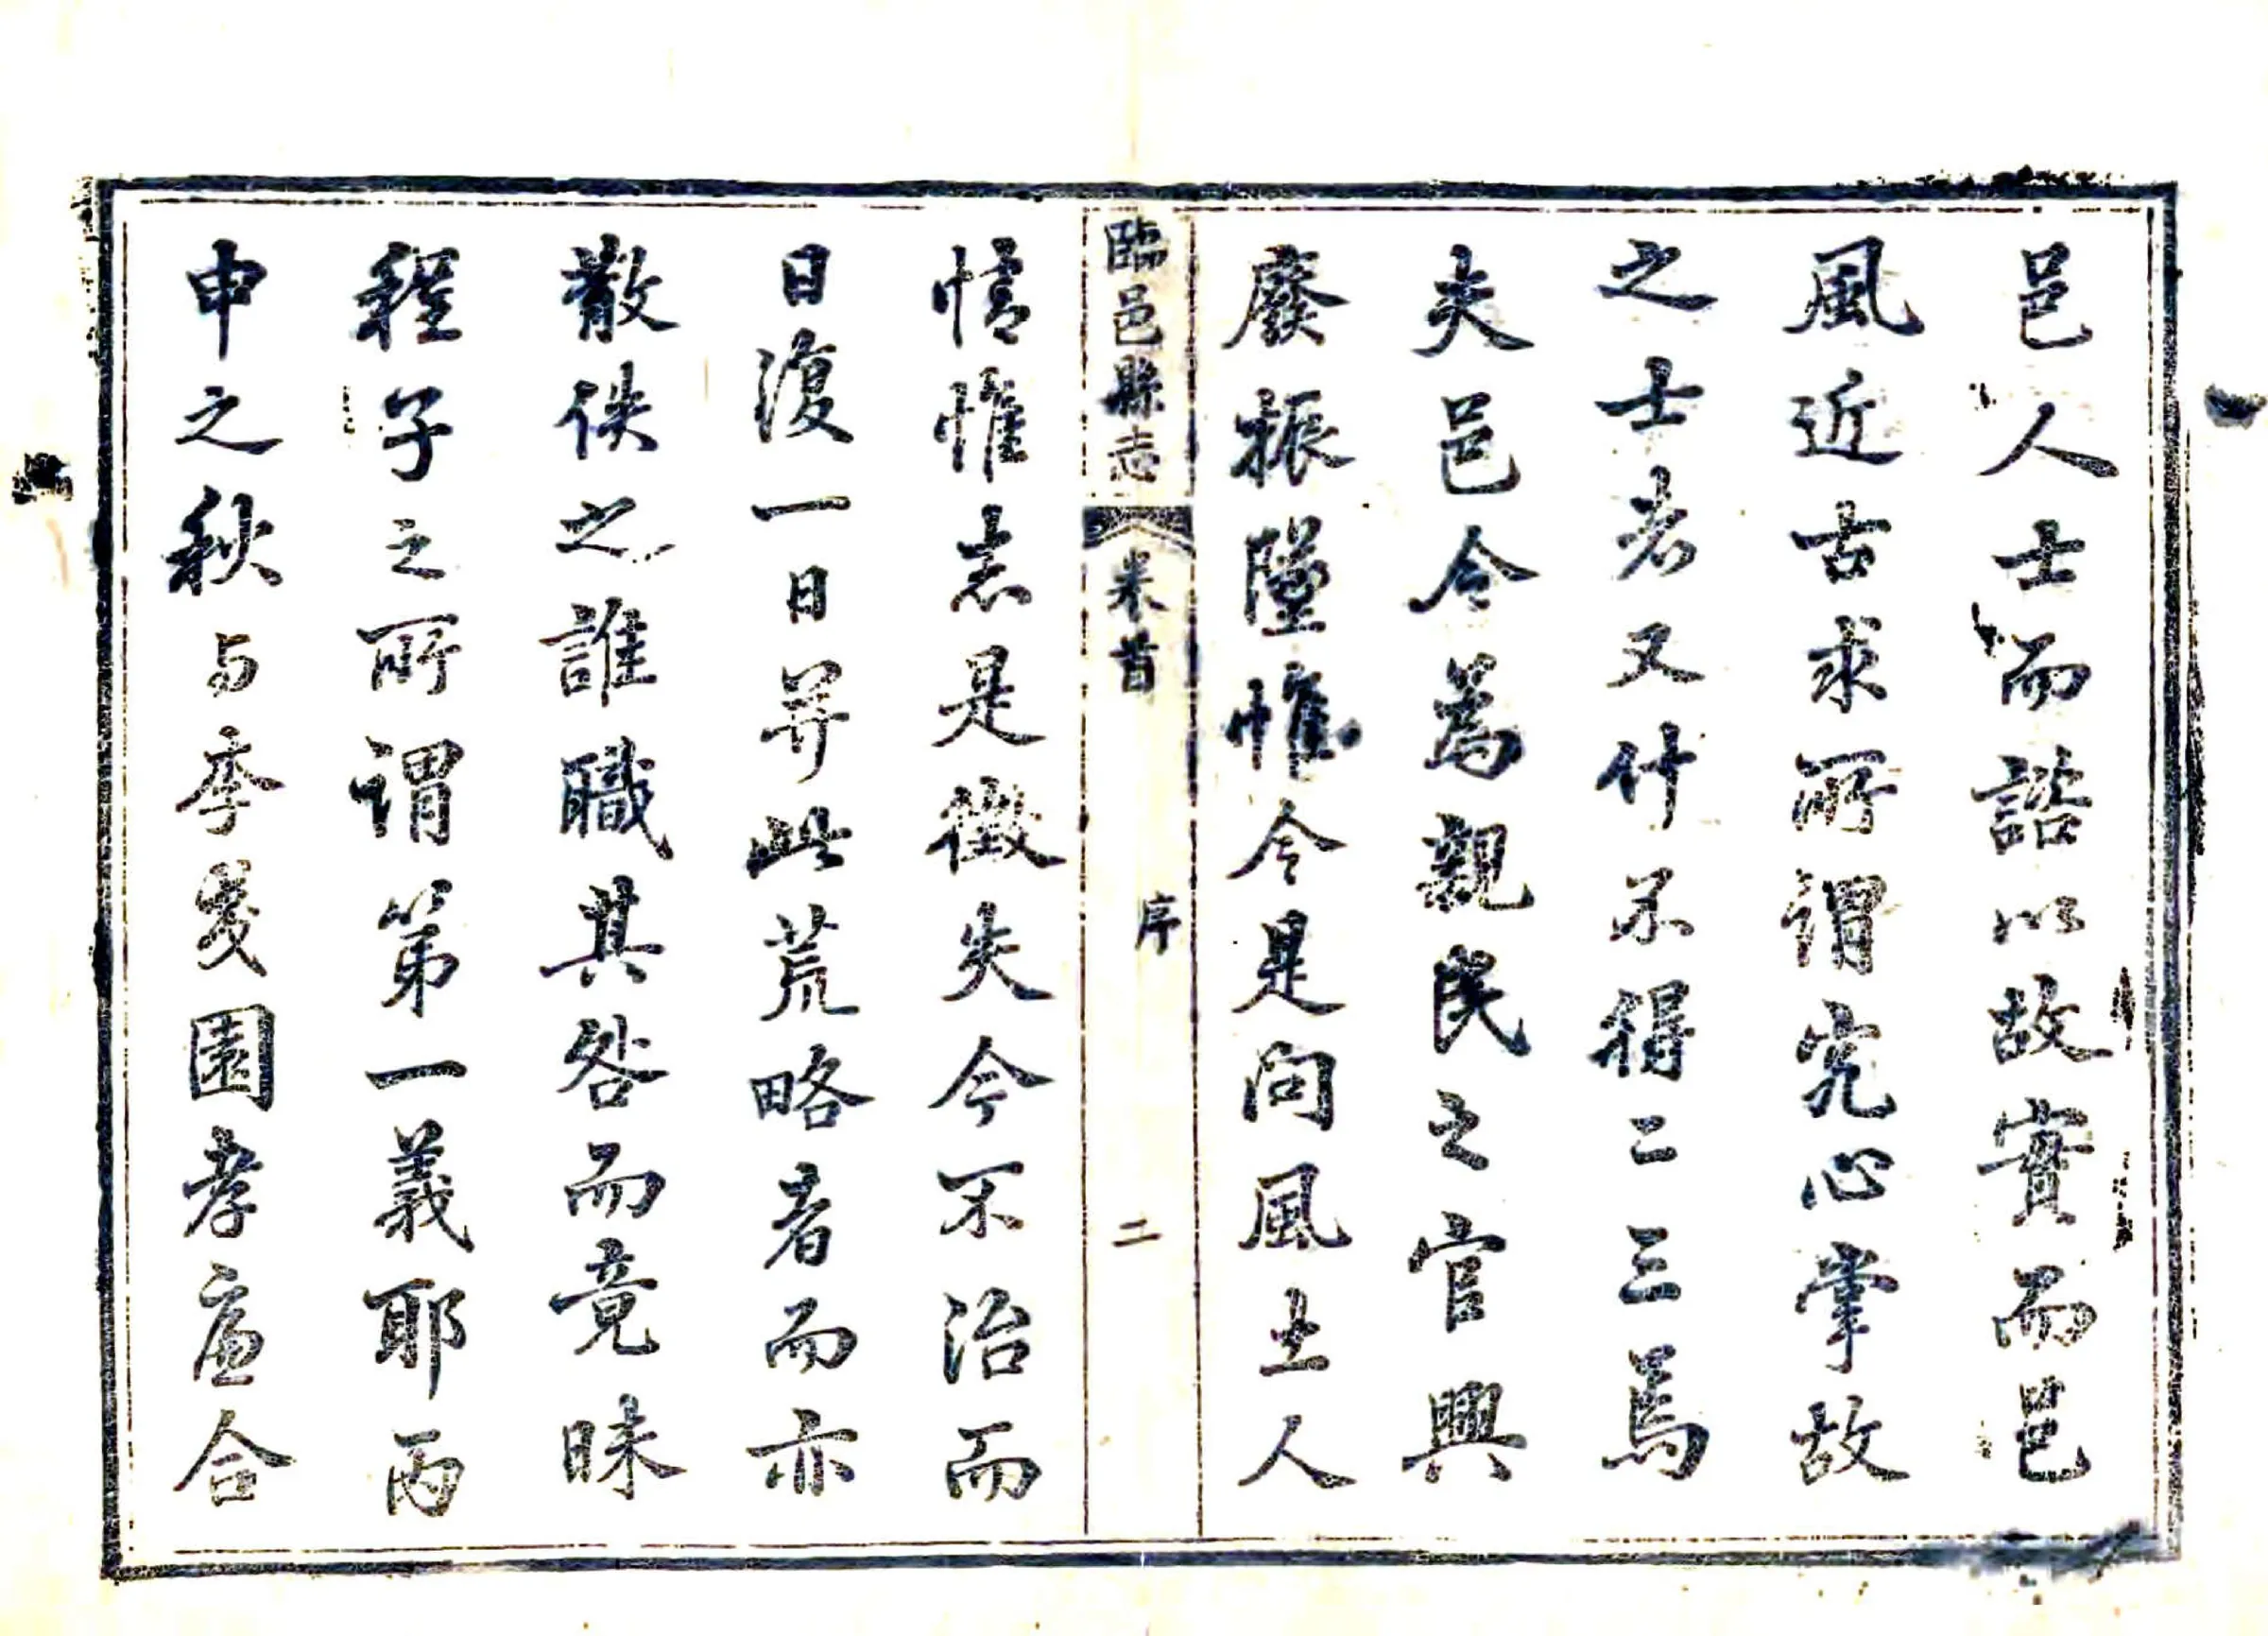 邑人士而諮以故實而邑
風近古求所謂究心掌故
之士者又什不得二三焉
夫邑令為親民之官興
廢振墜惟令是問風土人
臨邑縣志
卷首
序
二
情惟志是徵失今不治而
日復一日并此荒略者而亦
散佚之誰職其咎而竟昧
程子之所謂第一義耶丙
申之秋与李叟園孝廉合